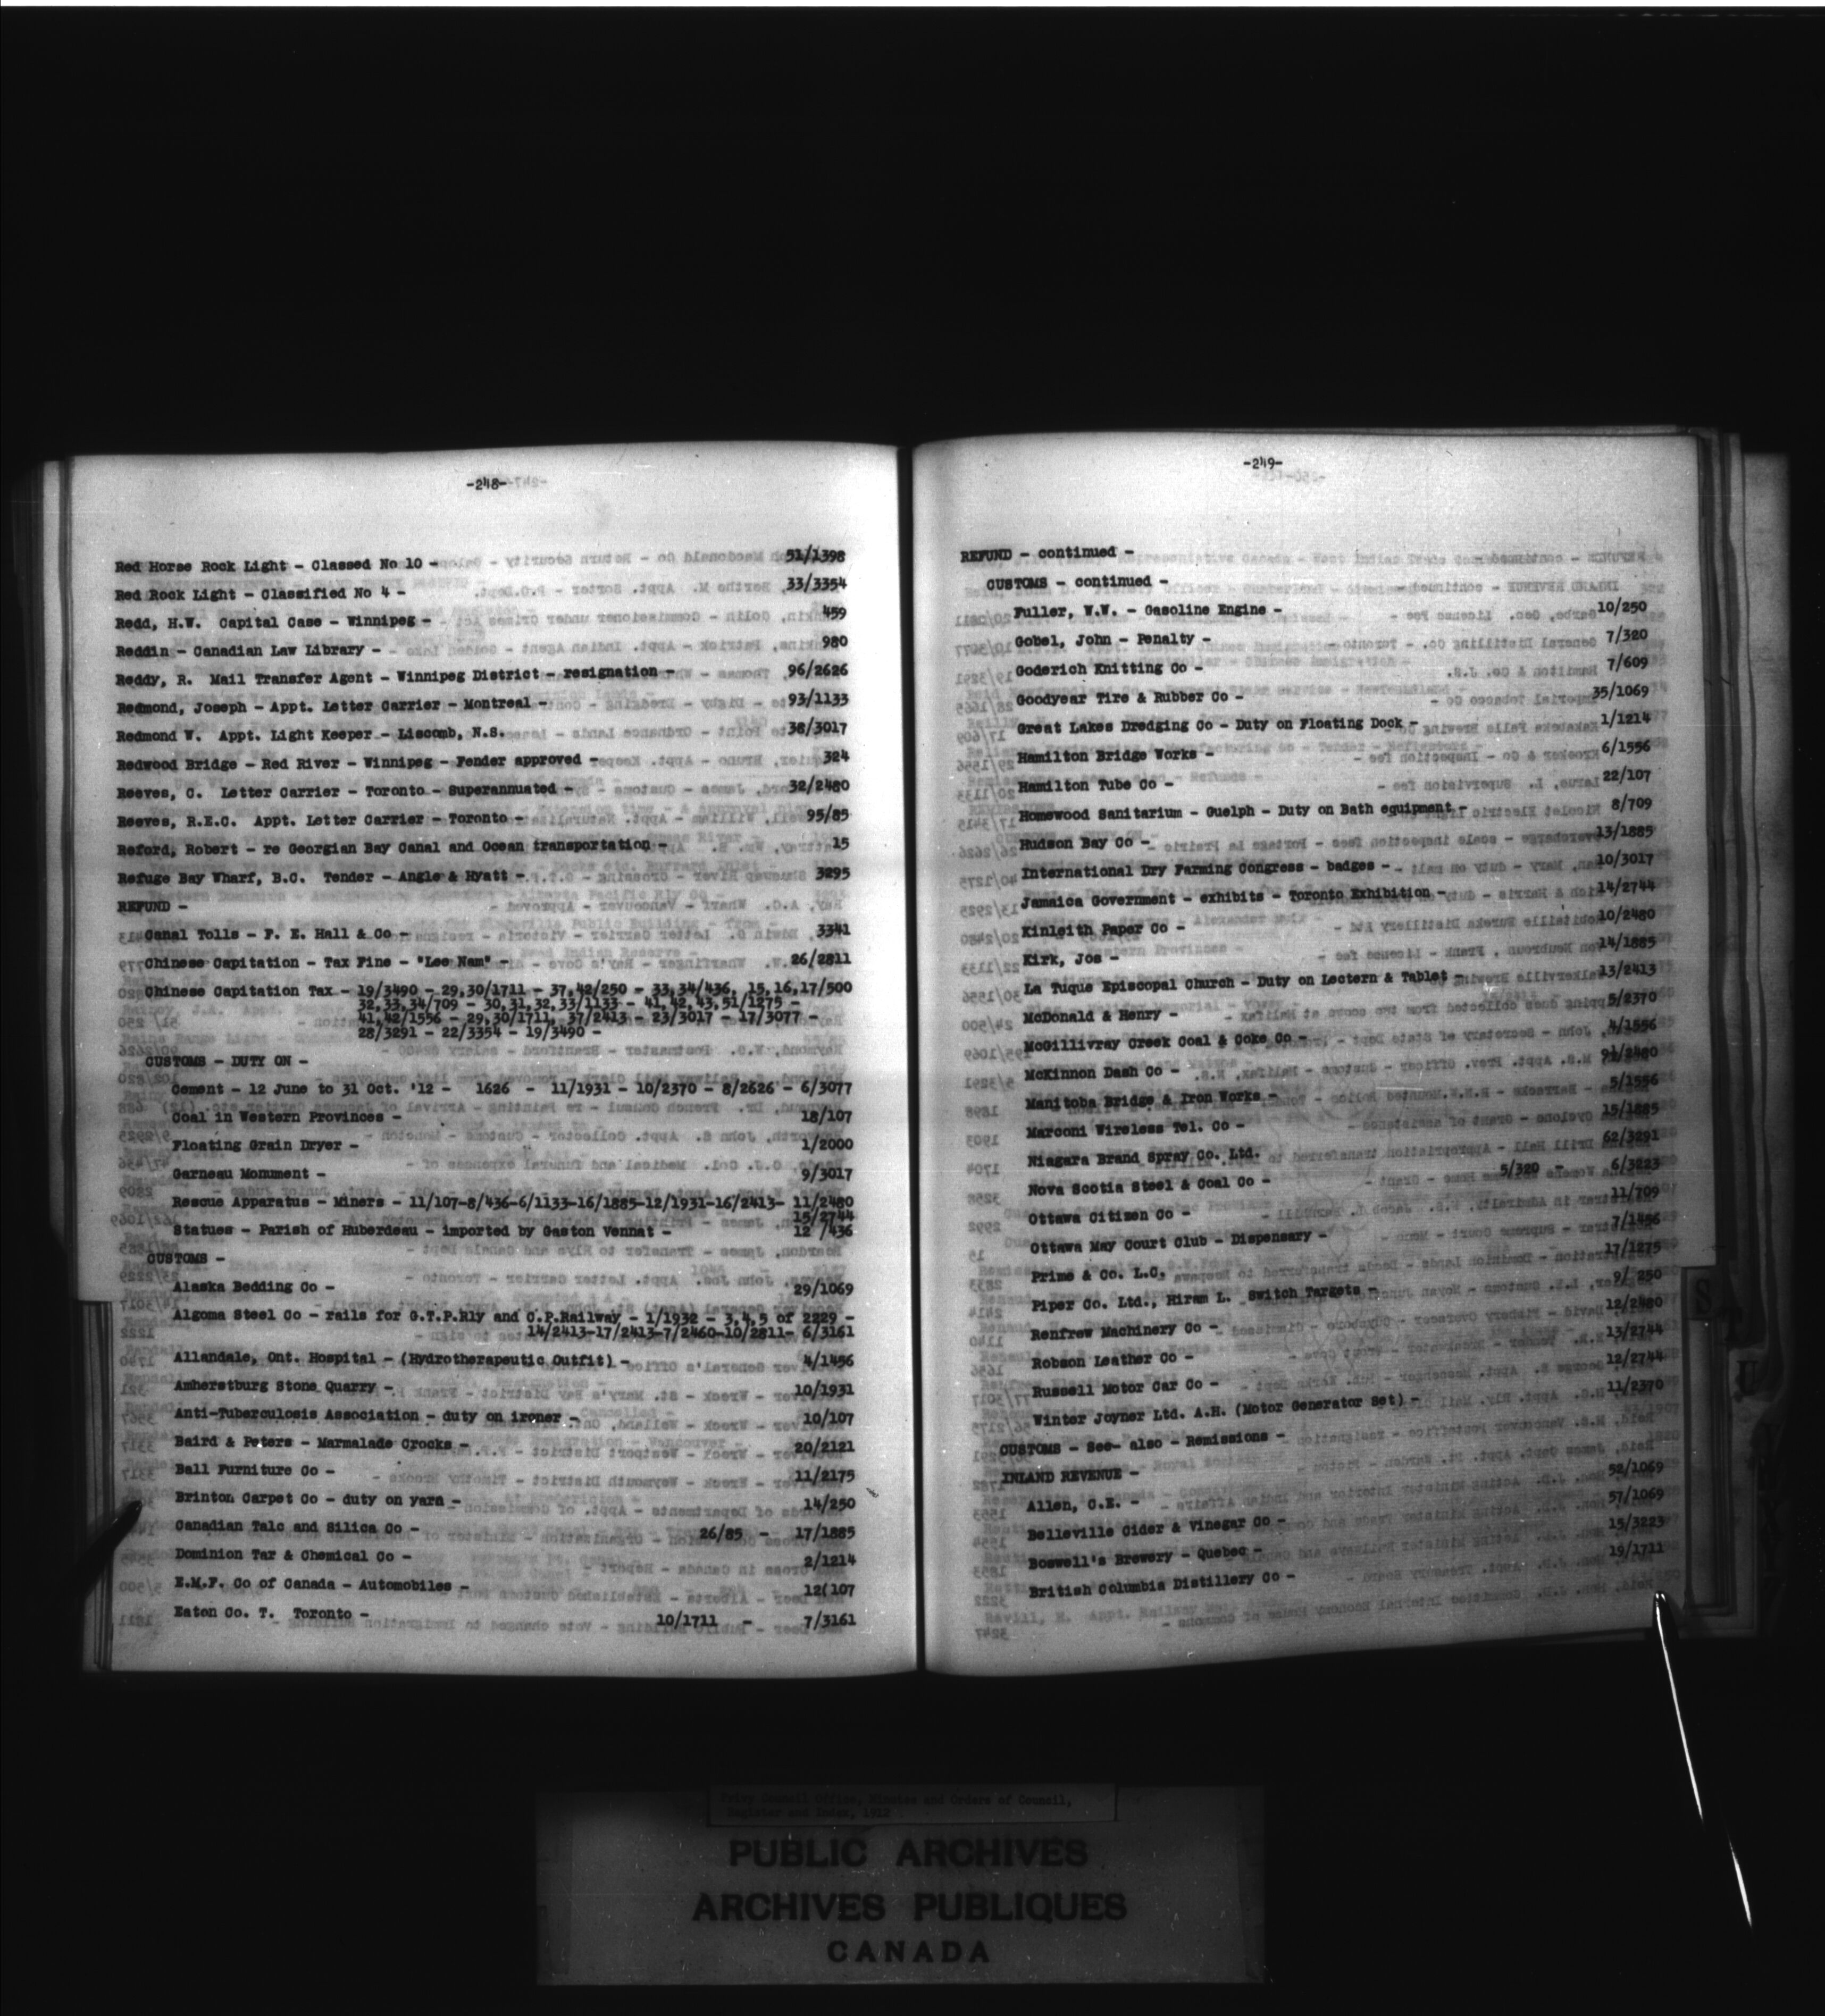 -248-
Red Horse Rock Light - Classed No 10 - 51/1398
Red Rock Light - Classified No 4 - 33/3354
Redd, H.W. Capital Case - Winnipeg - 459
Reddin - Canadian Law Library - 980
Reddy, R. Mail Transfer Agent - Winnipeg District - resignation - 96/2626
Redmond, Joseph - Appt. Letter Carrier - Montreal - 93/1133
Redmond W. Appt. Light Keeper - Liscomb, N.S. 38/3017
Redwood Bridge - Red River - Winnipeg - Fender approved - 324
Reeves, C. Letter Carrier - Toronto - Superannuated - 32/2480
Reeves, R.E.C. Appt. Letter Carrier - Toronto - 95/85
Reford, Robert - re Georgian Bay Canal and Ocean transportation - 15
Refuge Bay Wharf, B.C. Tender - Angle & Hyatt - 3295
REFUND -
Canal Tolls - F. E. Hall & Co - 3341
Chinese Capitation - Tax Fine - "Lee Nam" - 26/2811
Chinese Capitation Tax - 19/3490 - 29,30/1711 - 37,42/250 - 33,34/436, 15,16,17/500
32,33,34/709 - 30,31,32,33/1133 - 41,42,43,51/1275 -
41,42/1556 - 29,30/1711, 37/2413 - 23/3017 - 17/3077 -
28/3291 - 22/3354 - 19/3490 -
CUSTOMS - DUTY ON -
Cement - 12 June to 31 Oct. '12 - 1626 - 11/1931 - 10/2370 - 8/2626 - 6/3077
Coal in Western Provinces - 18/107
Floating Grain Dryer - 1/2000
Garneau Monument - 9/3017
Rescue Apparatus - Miners - 11/107-8/436-6/1133-16/1885-12/1931-16/2413- 11/2480
15/2744
Statues - Parish of Huberdeau - imported by Gaston Vennat - 12 /436
CUSTOMS -
Alaska Bedding Co - 29/1069
Algoma Steel Co - rails for G.T.P.Rly and C.P.Railway - 1/1932 - 3,4,5 of 2229 -
14/2413-17/2413-7/2460-10/2811- 6/3161
Allandale, Ont. Hospital - (Hydrotherapeutic Outfit) - 4/1456
Amherstburg Stone Quarry - 10/1931
Anti-Tuberculosis Association - duty on ironer - 10/107
Baird & Peters - Marmalade Crocks - 20/2121
Ball Furniture Co - 11/2175
Brinton Carpet Co - duty on yarn - 14/250
Canadian Talc and Silica Co - 26/85 - 17/1885
Dominion Tar & Chemical Co - 2/1214
E.M.F. Co of Canada - Automobiles - 12(107
Eaton Co. T. Toronto - 10/1711 - 7/3161
-249-
REFUND - continued -
CUSTOMS - continued -
Fuller, W.W. - Gasoline Engine - 10/250
Gobel, John - Penalty - 7/320
Goderich Knitting Co - 7/609
Goodyear Tire & Rubber Co - 35/1069
Great Lakes Dredging Co - Duty on Floating Dock - 1/1214
Hamilton Bridge Works - 6/1556
Hamilton Tube Co - 22/107
Homewood Sanitarium - Guelph - Duty on Bath equipment - 8/709
Hudson Bay Co - 13/1885
International Dry Farming Congress - badges - 10/3017
Jamaica Government - exhibits - Toronto Exhibition - 14/2744
Kinleith Paper Co - 10/2480
Kirk, Jos - 14/1885
La Tuque Episcopal Church - Duty on Lectern & Tablet - 13/2413
McDonald & Henry - 5/2370
McGillivray Creek Coal & Coke Co - 4/1556
McKinnon Dash Co - 91/2480
Manitoba Bridge & Iron Works - 5/1556
Marconi Wireless Tel. Co - 15/1885
Niagara Brand Spray Co. Ltd. 62/3291
Nova Scotia Steel & Coal Co - 5/320 - 6/3223
Ottawa Citizen Co - 11/709
Ottawa May Court Club - Dispensary - 7/1456
Prime & Co. L.C. 17/1275
Piper Co. Ltd., Hiram L. Switch Targets - 9/ 250
Renfrew Machinery Co - 12/2480
Robson Leather Co - 13/2744
Russell Motor Car Co - 12/2744
Winter Joyner Ltd. A.H. (Motor Generator Set) - 11/2370
CUSTOMS - See- also - Remissions -
INLAND REVENUE -
Allen, C.E. - 52/1069
Belleville Cider & Vinegar Co - 57/1069
Boswell's Brewery - Quebec - 15/3223
British Columbia Distillery Co - 19/1711
Privy Council Office, Minutes and Orders of Council,
Register and Index, 1912
PUBLIC ARCHIVES
ARCHIVES PUBLIQUES
CANADA